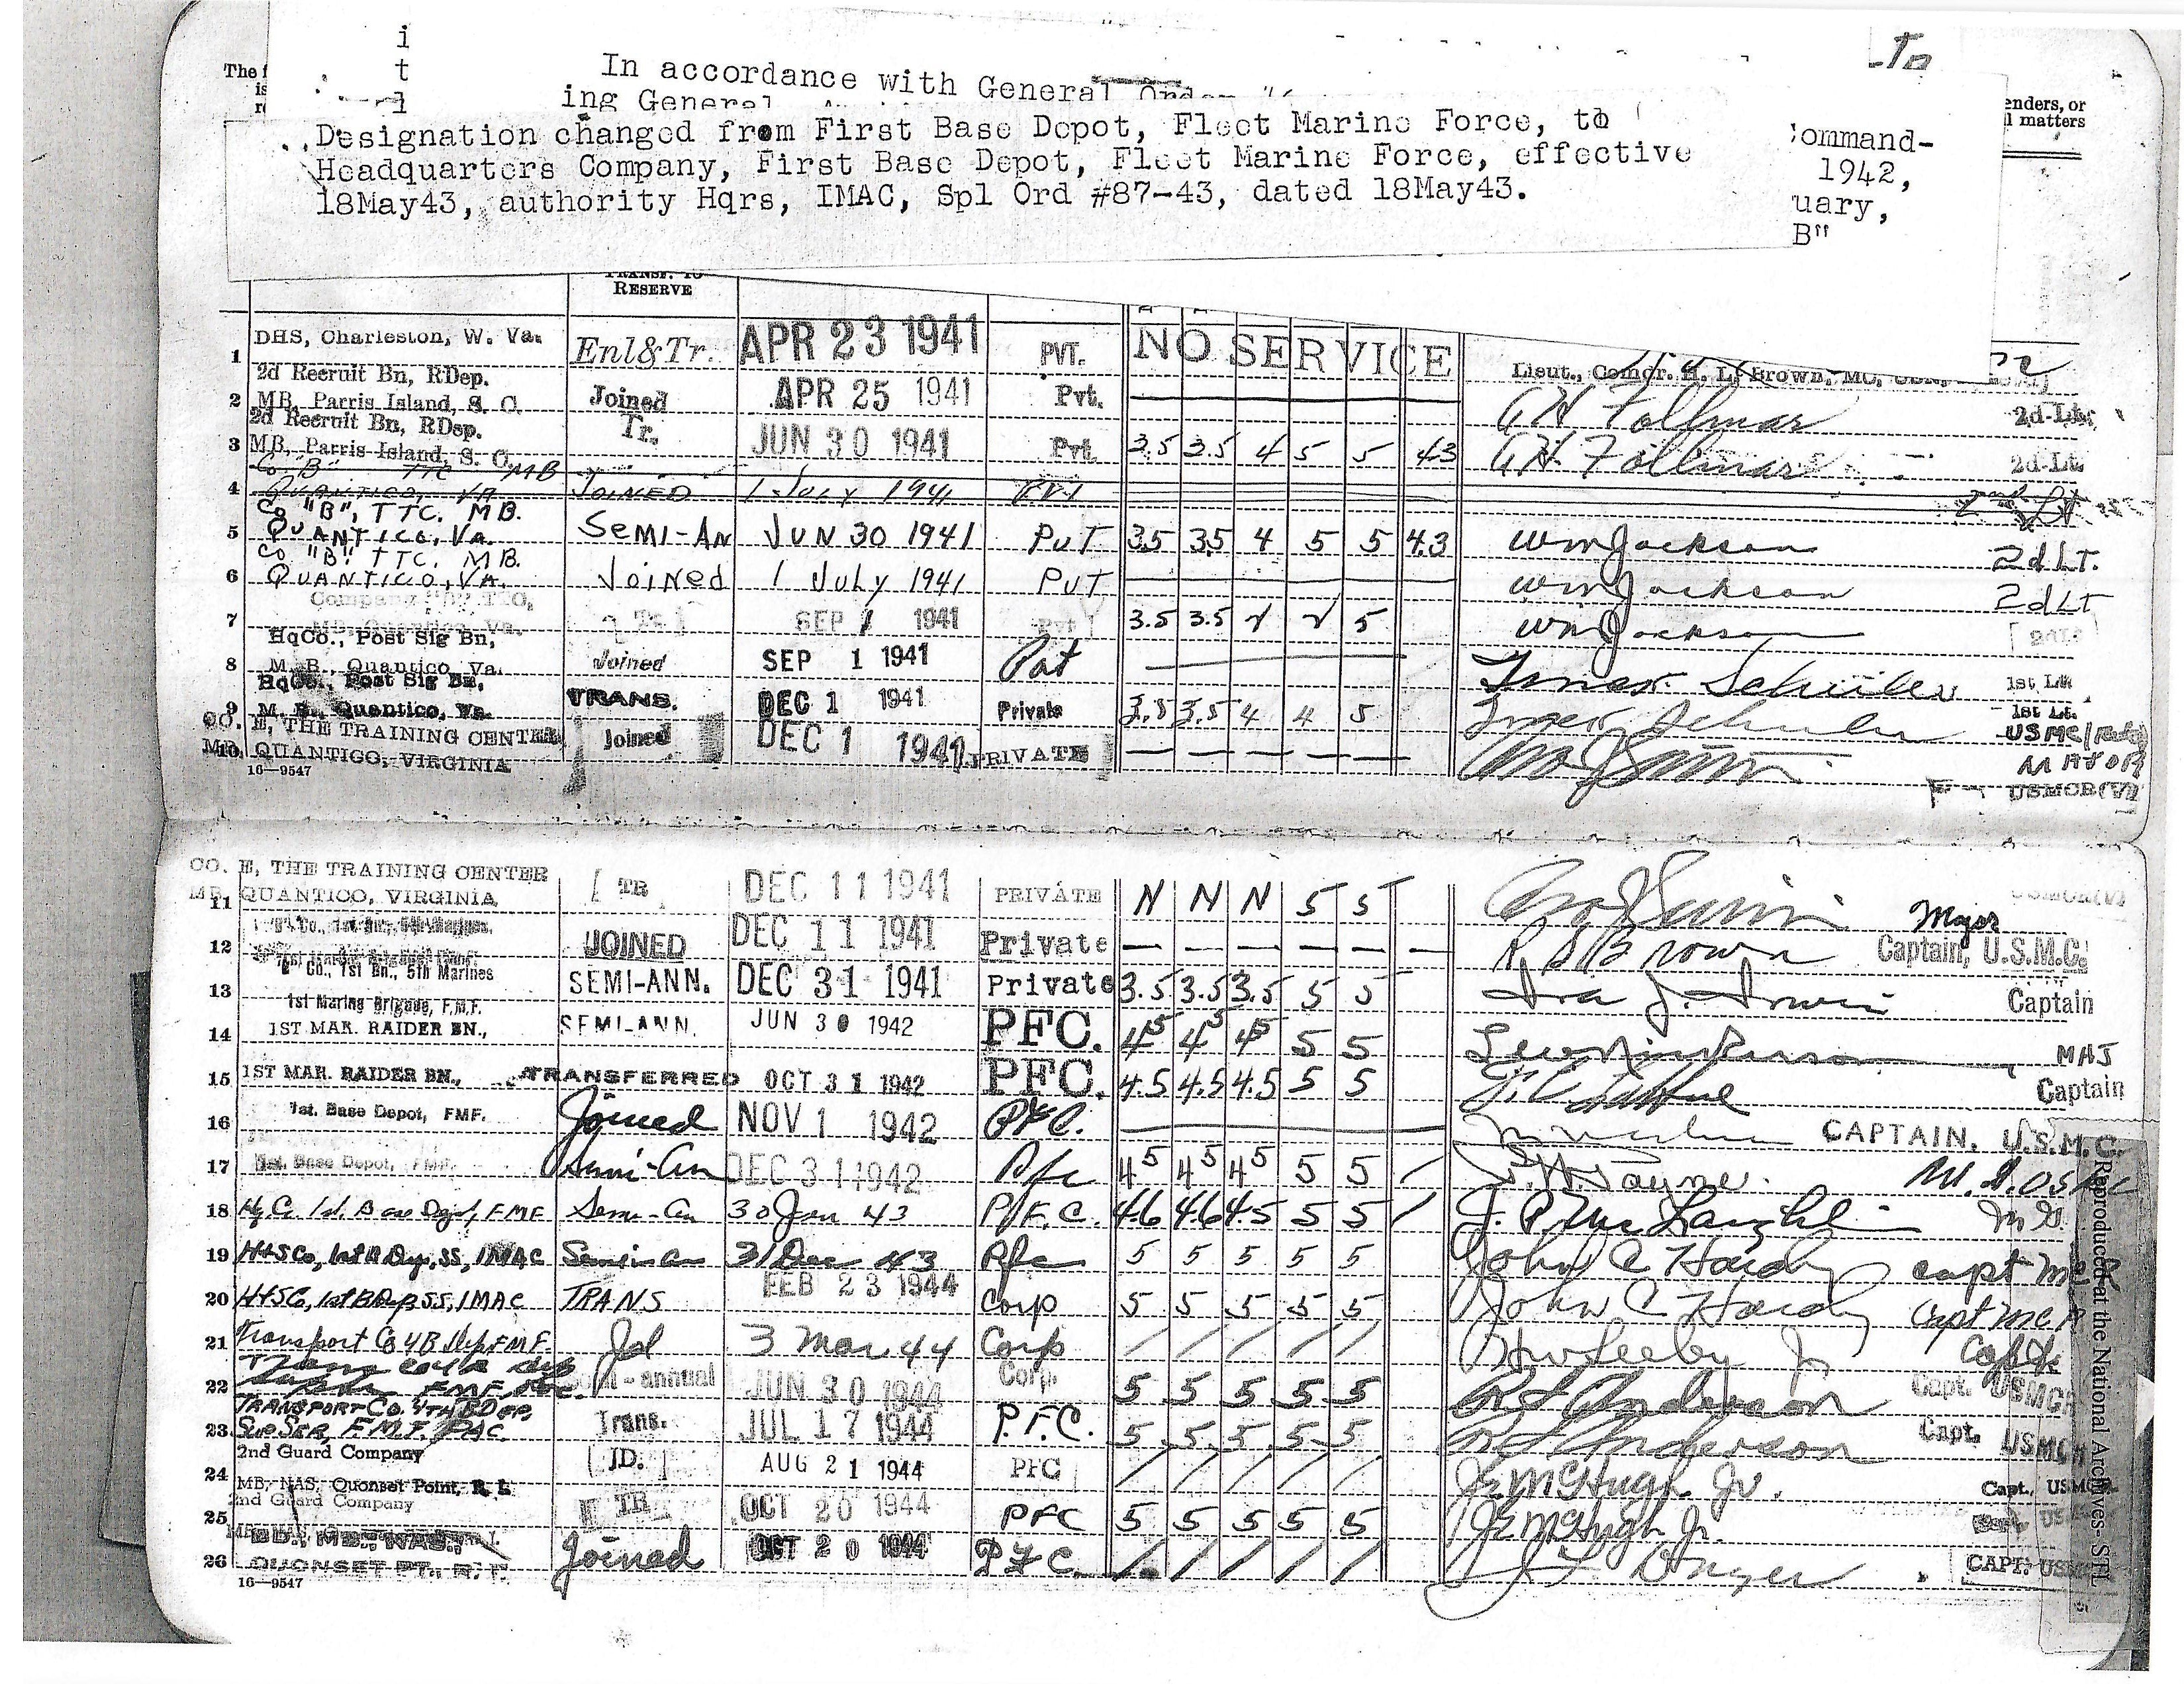 i
t
l
The f
is
r
In accordance with General Order
ing General
To
enders, or
l matters
Command-
1942,
uary,
B"
Designation changed from First Base Depot, Fleet Marine Force, to
Headquarters Company, First Base Depot, Fleet Marine Force, effective
18May43, authority Hqrs, IMAC, Spl Ord #87-43, dated 18May43.
TRANSF. TO
RESERVE
1 DHS, Charleston, W. Va. Enl&Tr. APR 23 1941 PVT. NO SERVICE Lieut., Comdr. H. L. Brown, MC,
2d Recruit Bn, RDep.
2 MB, Parris Island, S. C. Joined APR 25 1941 Pvt. A H Follmar 2d-Lt.
2d Recruit Bn, RDep.
3 MB, Parris Island, S. C. Tr. JUN 30 1941 Pvt. 3.5 3.5 4 5 5 4.3 A H Follmar 2d-Lt.
Co "B" TTC MB
4 QUANTICO, VA JOINED 1 July 1941 PVT 2nd Lt
Co "B", TTC. MB.
5 QUANTICO, Va. SEMI-AN JUN 30 1941 PvT 3.5 3.5 4 5 5 4.3 Wm Jackson 2d LT.
Co "B" TTC. MB.
6 QUANTICO, VA. Joined 1 July 1941 PvT Wm Jackson 2d LT
7 Quantico, Va. Tr SEP 1 1941 Pvt 3.5 3.5 5 Wm Jackson
HqCo., Post Sig Bn,
8 M. B., Quantico, Va. Joined SEP 1 1941 Pvt 1st Lt.
HqCo., Post Sig Bn,
9 M. B., Quantico, Va. TRANS. DEC 1 1941 Private 3.5 3.5 4 4 5 1st Lt.
USMC
CO. E, THE TRAINING CENTER
10 MB, QUANTICO, VIRGINIA Joined DEC 1 1941 PRIVATE — — — — — MAJOR
16—9547 USMCR(V)
CO. E, THE TRAINING CENTER
11 MB, QUANTICO, VIRGINIA TR DEC 11 1941 PRIVATE N N N 5 5 Major USMCR(V)
12 JOINED DEC 11 1941 Private — — — — — Brown Captain, U.S.M.C.
Co., 1st Bn., 5th Marines
13 SEMI-ANN. DEC 31 1941 Private 3.5 3.5 3.5 5 5 Ira J. Irwin Captain
1st Marine Brigade, F.M.F.
14 1ST MAR. RAIDER BN., SEMI-ANN. JUN 30 1942 PFC. 4.5 4.5 4.5 5 5 MAJ
15 1ST MAR. RAIDER BN., TRANSFERRED OCT 31 1942 PFC. 4.5 4.5 4.5 5 5 Captain
16 1st. Base Depot, FMF. Joined NOV 1 1942 Pfc. CAPTAIN, U.S.M.C.
17 1st. Base Depot, FMF. Semi-An DEC 31 1942 Pfc 4.5 4.5 4.5 5 5 / Payne.
18 Hq Co 1st. Base Depot, FMF Semi-An 30 Jun 43 P.F.C. 4.6 4.6 4.5 5 5 / J. P. McLaughlin
19 H+S Co, 1st B Dep, SS, IMAC Semi-an 31 Dec 43 Pfc 5 5 5 5 5 John C Hardy Capt
20 H+S Co, 1st B Dep SS, IMAC TRANS FEB 23 1944 Corp 5 5 5 5 5 John C Hardy Capt
21 Transport Co 4 B Dep FMF. Jd 3 Mar 44 Corp / / / / / H W Seeby Jr Capt
22 Semi-annual JUN 30 1944 Corp 5 5 5 5 5 Anderson Capt. USMCR
TRANSPORT Co. 4TH B DEP,
23 Sup SER, F.M.F. PAC. Trans. JUL 17 1944 P.F.C. 5 5 5 5 5 Anderson Capt. USMCR
2nd Guard Company
24 MB, NAS, Quonset Point, R. I. JD. AUG 21 1944 PFC / / / / / McHugh Jr. Capt., USMCR
2nd Guard Company
25 TR OCT 20 1944 PFC 5 5 5 5 5 McHugh Jr.
BD., MB., NAS.,
26 QUONSET PT., R. I. Joined OCT 20 1944 P.F.C. / / / / / Dwyer CAPT. USM
16—9547
Reproduced at the National Archives-STL